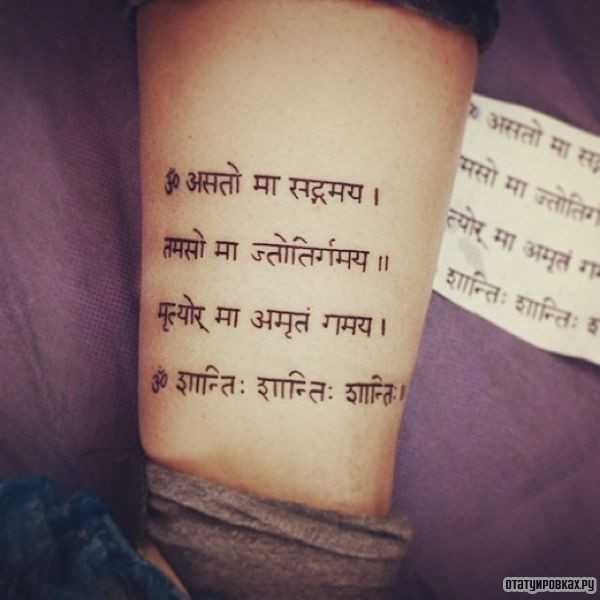 ॐ असतो मा सद्गमय ।
तमसो मा ज्तोतिर्गमय ॥
मृत्योर् मा अमृतं गमय ।
ॐ शान्तिः शान्तिः शान्तिः ॥
असतो मा
मसो मा ज्तोतिर्ग
त्योर् मा अमृतं गम
शान्तिः शान्तिः
ОТАТУИРОВКАХ.РУ